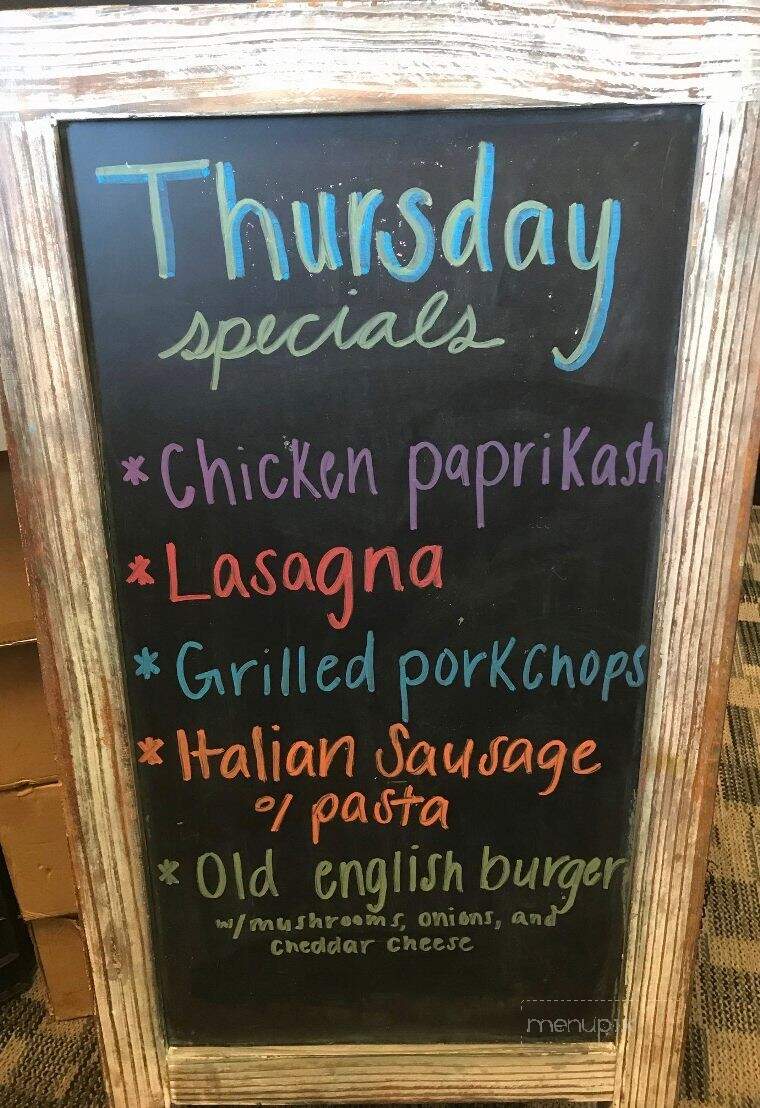 Thursday
specials
* Chicken paprikash
* Lasagna
* Grilled porkchops
* Italian Sausage
o/ pasta
* Old english burger
w/mushrooms, onions, and
cheddar cheese
menupix